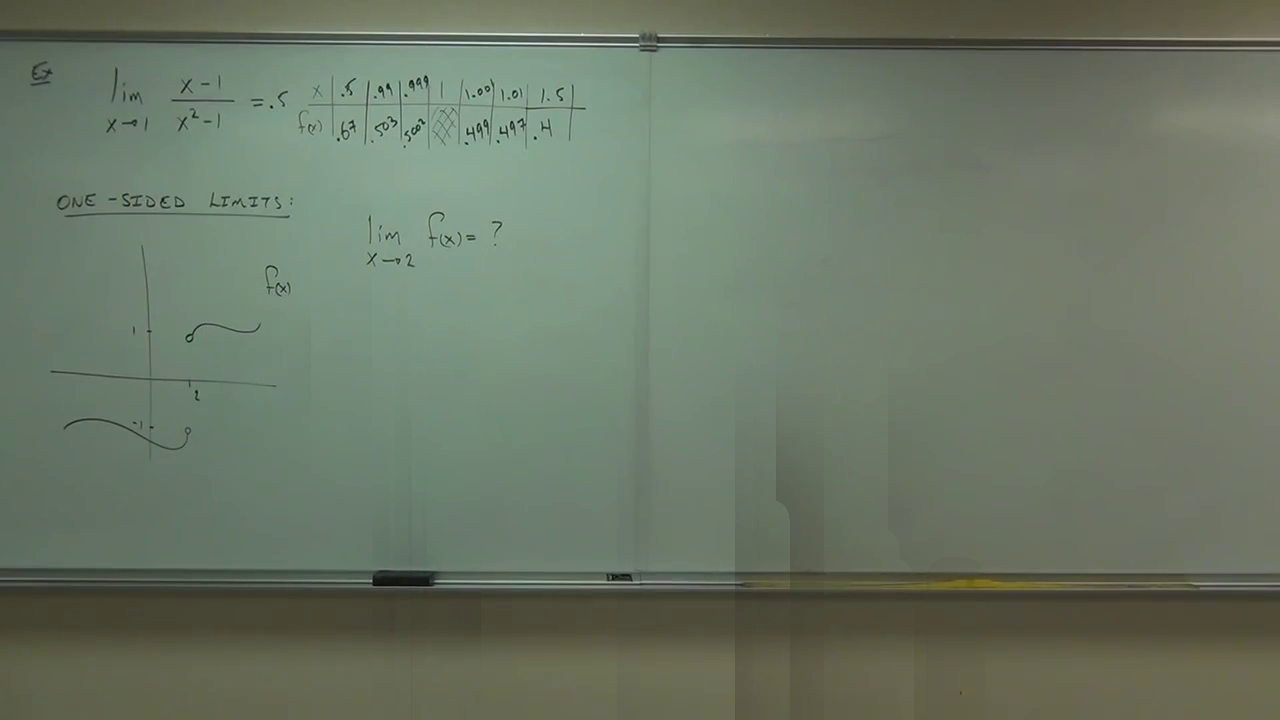 Ex lim x→1 x-1 / x²-1 = .5
x | .5 | .99 | .999 | 1 | 1.001 | 1.01 | 1.5
f(x) | .67 | .503 | .5002 | | .499 | .497 | .4
ONE-SIDED LIMITS:
lim x→2 f(x) = ?
f(x)
1
2
-1